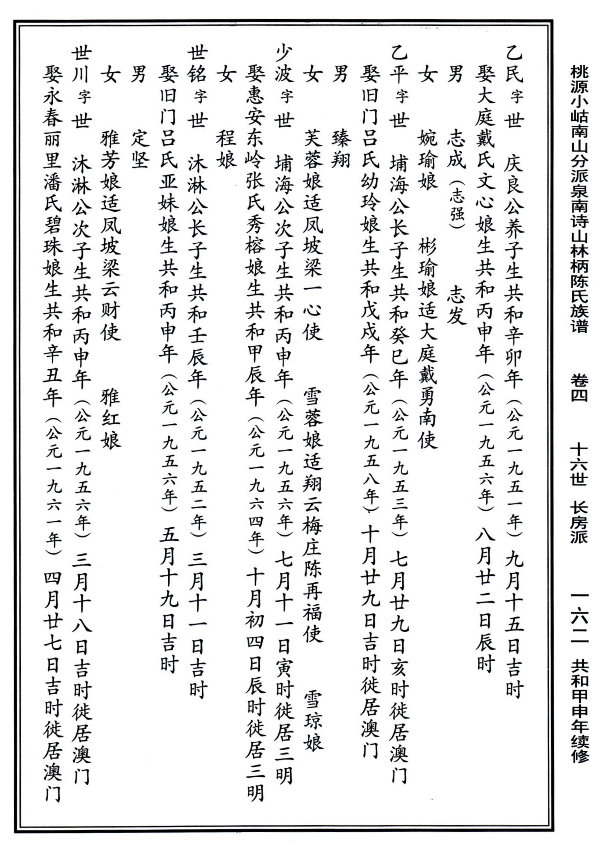 桃源小岵南山分派泉南诗山林柄陈氏族谱 卷四 十六世 长房派 一六二 共和甲申年续修
乙民字世 庆良公养子生共和辛卯年（公元一九五一年）九月十五日吉时
娶大庭戴氏文心娘生共和丙申年（公元一九五六年）八月廿二日辰时
男 志成（志强） 志发
女 婉瑜娘 彬瑜娘适大庭戴勇南使
乙平字世 埔海公长子生共和癸巳年（公元一九五三年）七月廿九日亥时徙居澳门
娶旧门吕氏幼玲娘生共和戊戌年（公元一九五八年）十月廿九日吉时徙居澳门
男 臻翔
女 芙蓉娘适凤坡梁一心使 雪蓉娘适翔云梅庄陈再福使 雪琼娘
少波字世 埔海公次子生共和丙申年（公元一九五六年）七月十一日寅时徙居三明
娶惠安东岭张氏秀榕娘生共和甲辰年（公元一九六四年）十月初四日辰时徙居三明
女 程娘
世铭字世 沐淋公长子生共和壬辰年（公元一九五二年）三月十一日吉时
娶旧门吕氏亚妹娘生共和丙申年（公元一九五六年）五月十九日吉时
男 定坚
女 雅芳娘适凤坡梁云财使 雅红娘
世川字世 沐淋公次子生共和丙申年（公元一九五六年）三月十八日吉时徙居澳门
娶永春丽里潘氏碧珠娘生共和辛丑年（公元一九六一年）四月廿七日吉时徙居澳门